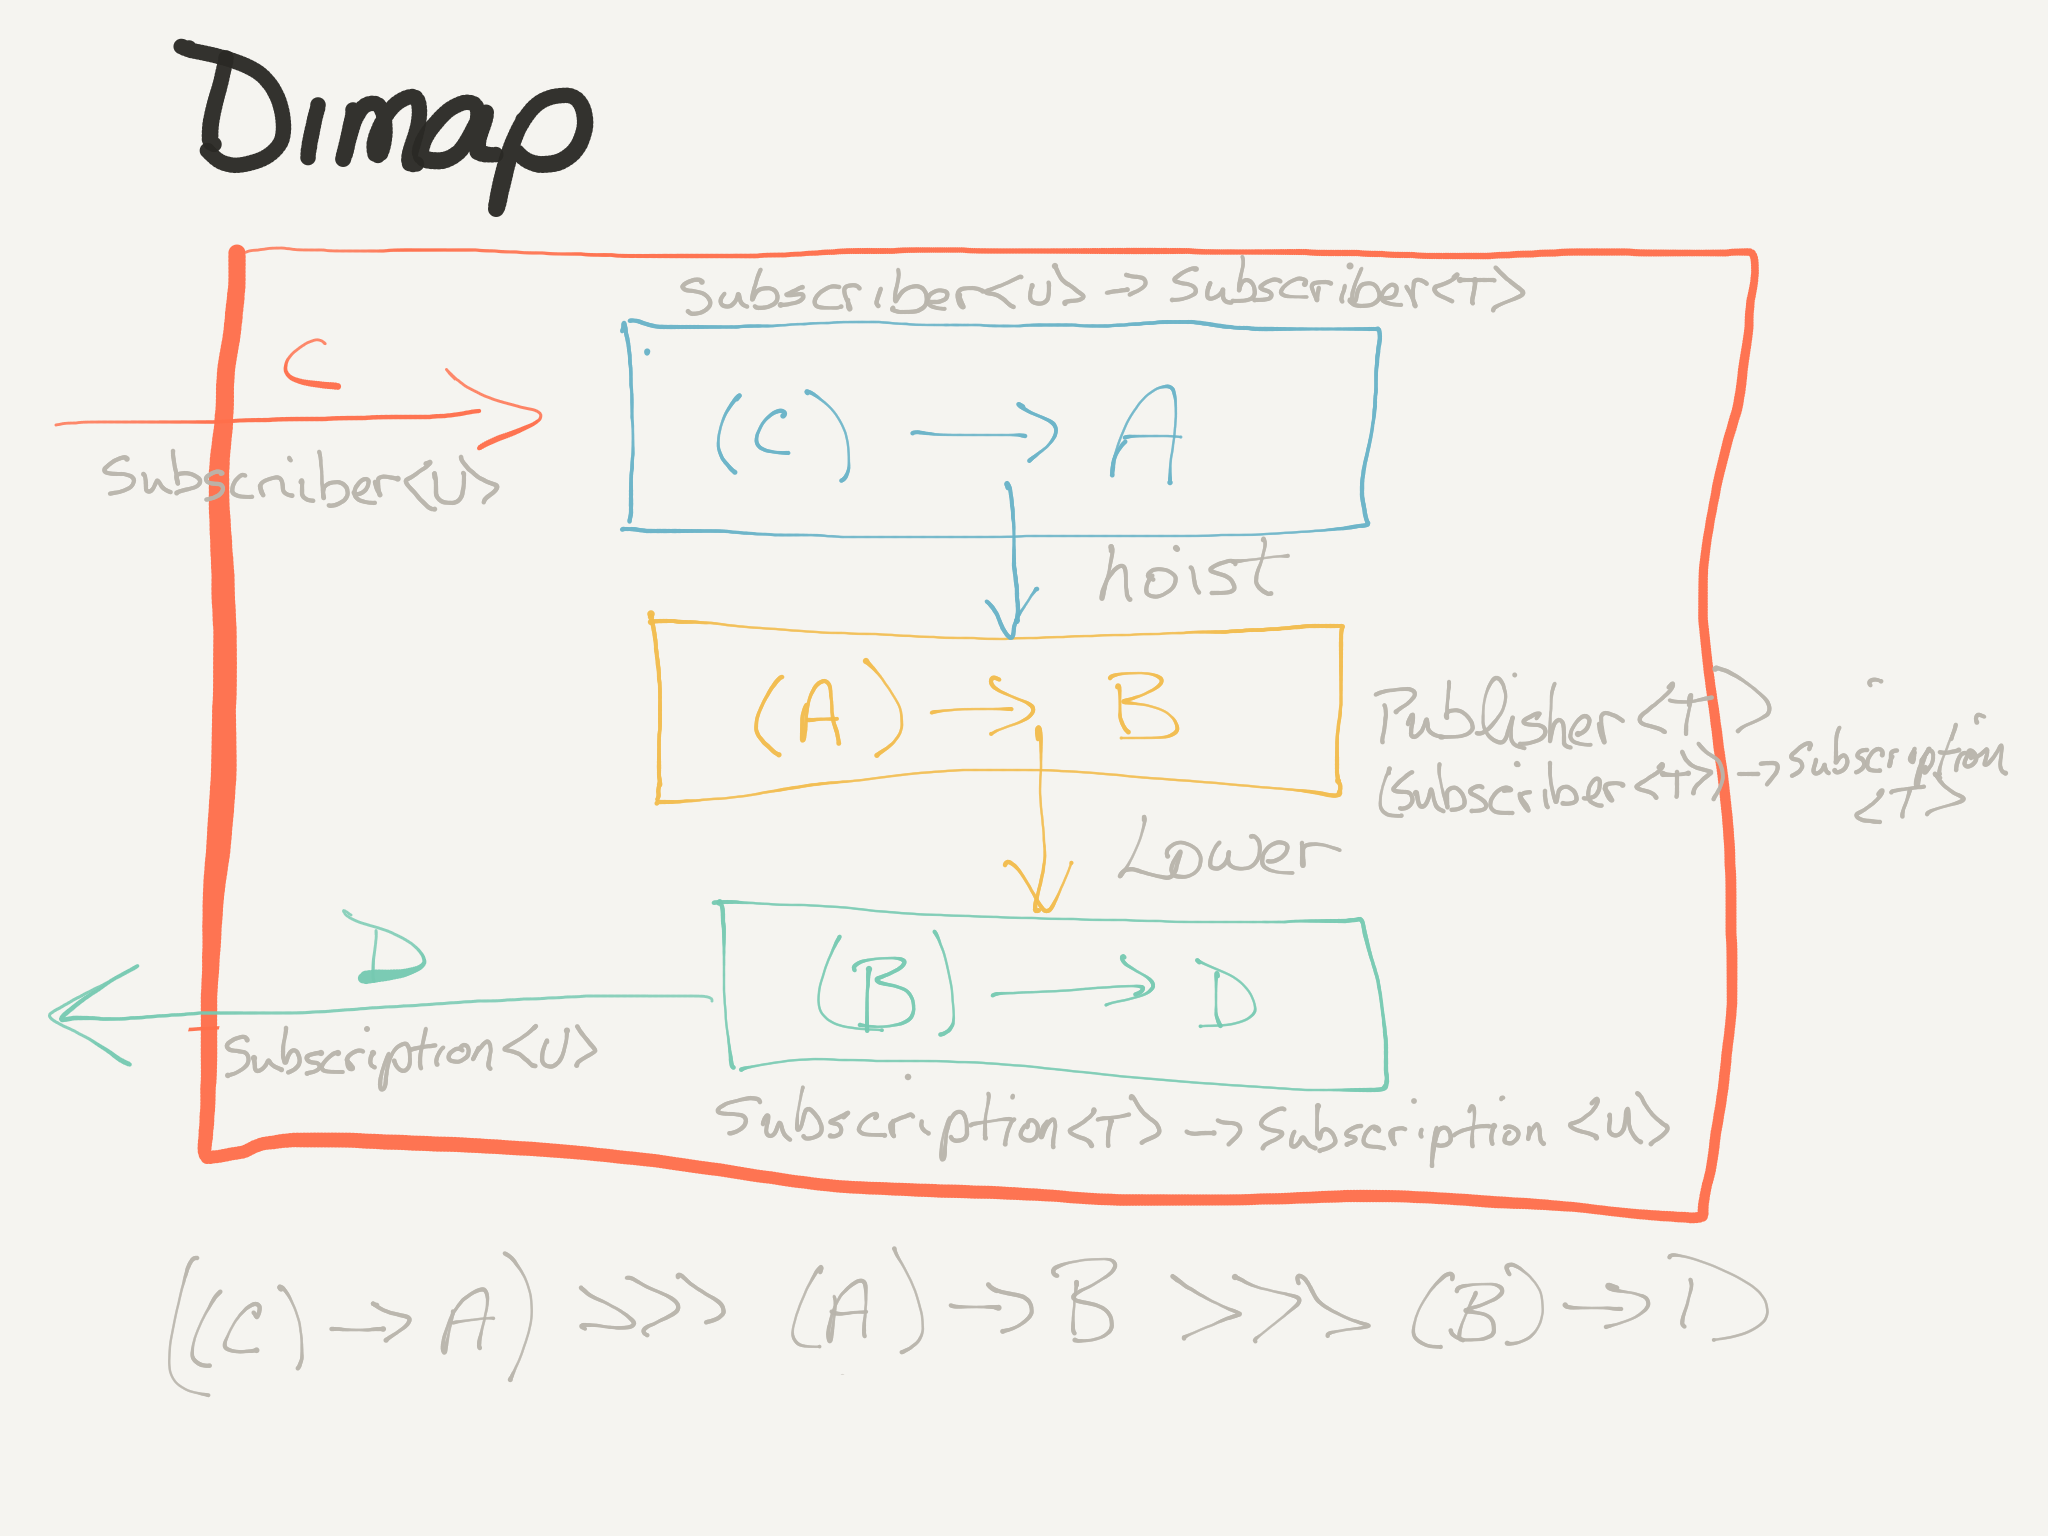 Dimap
Subscriber<U> -> Subscriber<T>
C
(C) -> A
Subscriber<U>
hoist
(A) -> B
Publisher<T>
(Subscriber<T>) -> Subscription
<T>
Lower
D
(B) -> D
Subscription<U>
Subscription<T> -> Subscription <U>
((C) -> A) >>> (A) -> B >>> (B) -> D